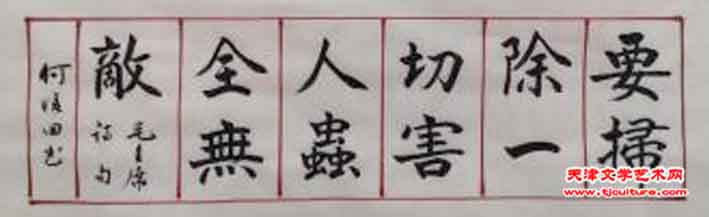 要掃
除一
切害
人蟲
全無
敵
毛主席
詩句
何濱田书
天津文学艺术网
www.tjculture.com